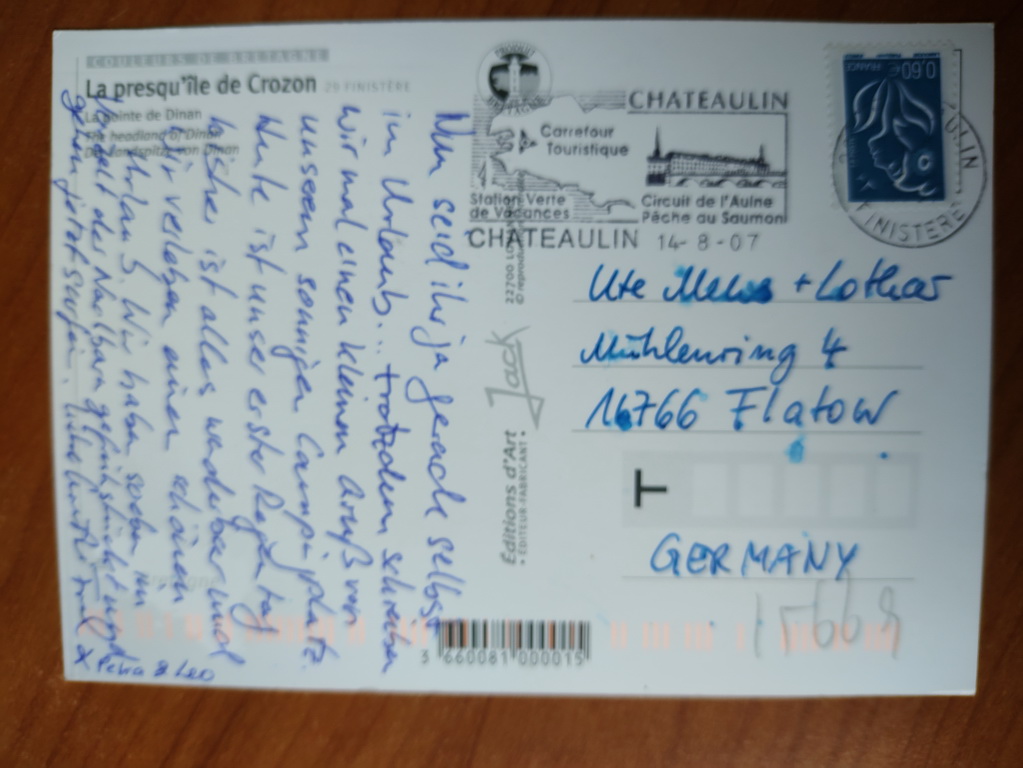 COULEURS DE BRETAGNE
La presqu'île de Crozon 29 FINISTÈRE
La pointe de Dinan
The headland of Dinan
Die Landspitze von Dinan
Nun seid ihr ja gerade selbst
im Urlaub... trotzdem schreiben
wir mal einen kleinen Gruß von
unserem sonnigen Campingplatz.
Heute ist unser erster Regentag
bisher ist alles wunderbar und
wir verleben einen schönen
Urlaub. Wir haben soeben im
Zelt der Nachbarn gefrühstückt und
gehen jetzt surfen. Liebe
Petra & Leo
BRETAGNE
CHATEAULIN
Carrefour
Touristique
Station Verte
de Vacances
Circuit de l'Aulne
Pêche au Saumon
CHATEAULIN 14-8-07
0,60€
FRANCE
FINISTERE
22700
© reproduction
Jack
Éditions d'Art
• ÉDITEUR-FABRICANT •
Ute + Lothar
Mühlenring 4
16766 Flatow
T
GERMANY
15669
3 660081 000015